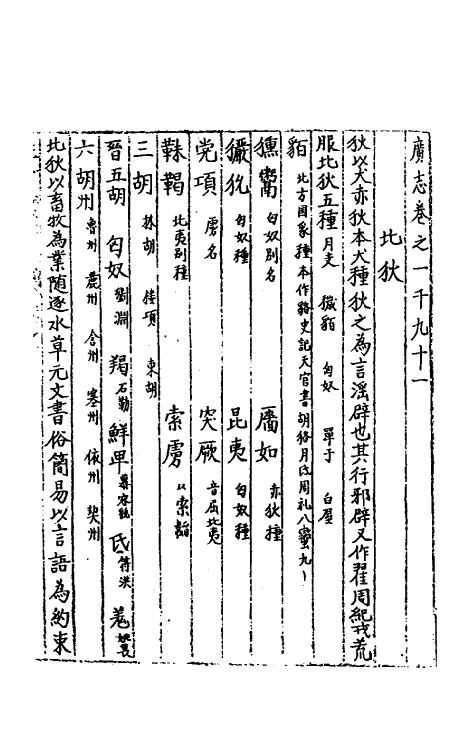 廣志卷之一千九十一
北狄
狄以犬赤狄本犬種狄之為言淫辟也其行邪辟又作翟周紀戎荒
服北狄五種 月支 獩貊 匈奴 單于 白屋
貊 北方國豸種本作貉史記天官書胡貉月氏周礼八蠻九〡
獯鬻 匈奴別名 廧如 赤狄種
玁狁 匈奴種 昆夷 匈奴種
党項 虜名 突厥 音屈北夷
靺鞨 北夷別種 索虜 以索辮
三胡 林胡 樓項 東胡
晉五胡 匈奴 劉淵 羯 石勒 鮮卑 慕容皝 氐 苻洪 羌 姚萇
六胡州 魯州 麗州 含州 塞州 依州 契州
北狄以畜牧為業随逐水草无文書俗簡易以言語為約束